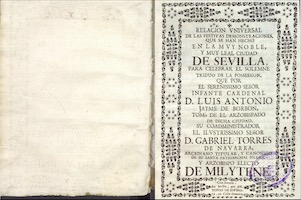 RELACION VNIVERSAL
DE LAS FESTIVAS DEMONSTRACIONES,
QUE SE HAN HECHO
EN LA MUY NOBLE,
Y MUY LEAL CIUDAD
DE SEVILLA,
PARA CELEBRAR EL SOLEMNE
TRIDUO DE LA POSSESSION,
QUE POR
EL SERENISSIMO SEÑOR
INFANTE CARDENAL
D. LUIS ANTONIO
JAYME DE BORBON,
TOMÒ DE EL ARZOBISPADO
DE DICHA CIUDAD,
SU COADMINISTRADOR
EL ILUSTRISSIMO SEÑOR
D. GABRIEL TORRES
DE NAVARRA,
ARCEDIANO TITULAR, Y CANONIGO
DE SU SANTA PATRIARCHAL IGLESIA,
Y ARZOBISPO ELECTO
DE MILYTENE.